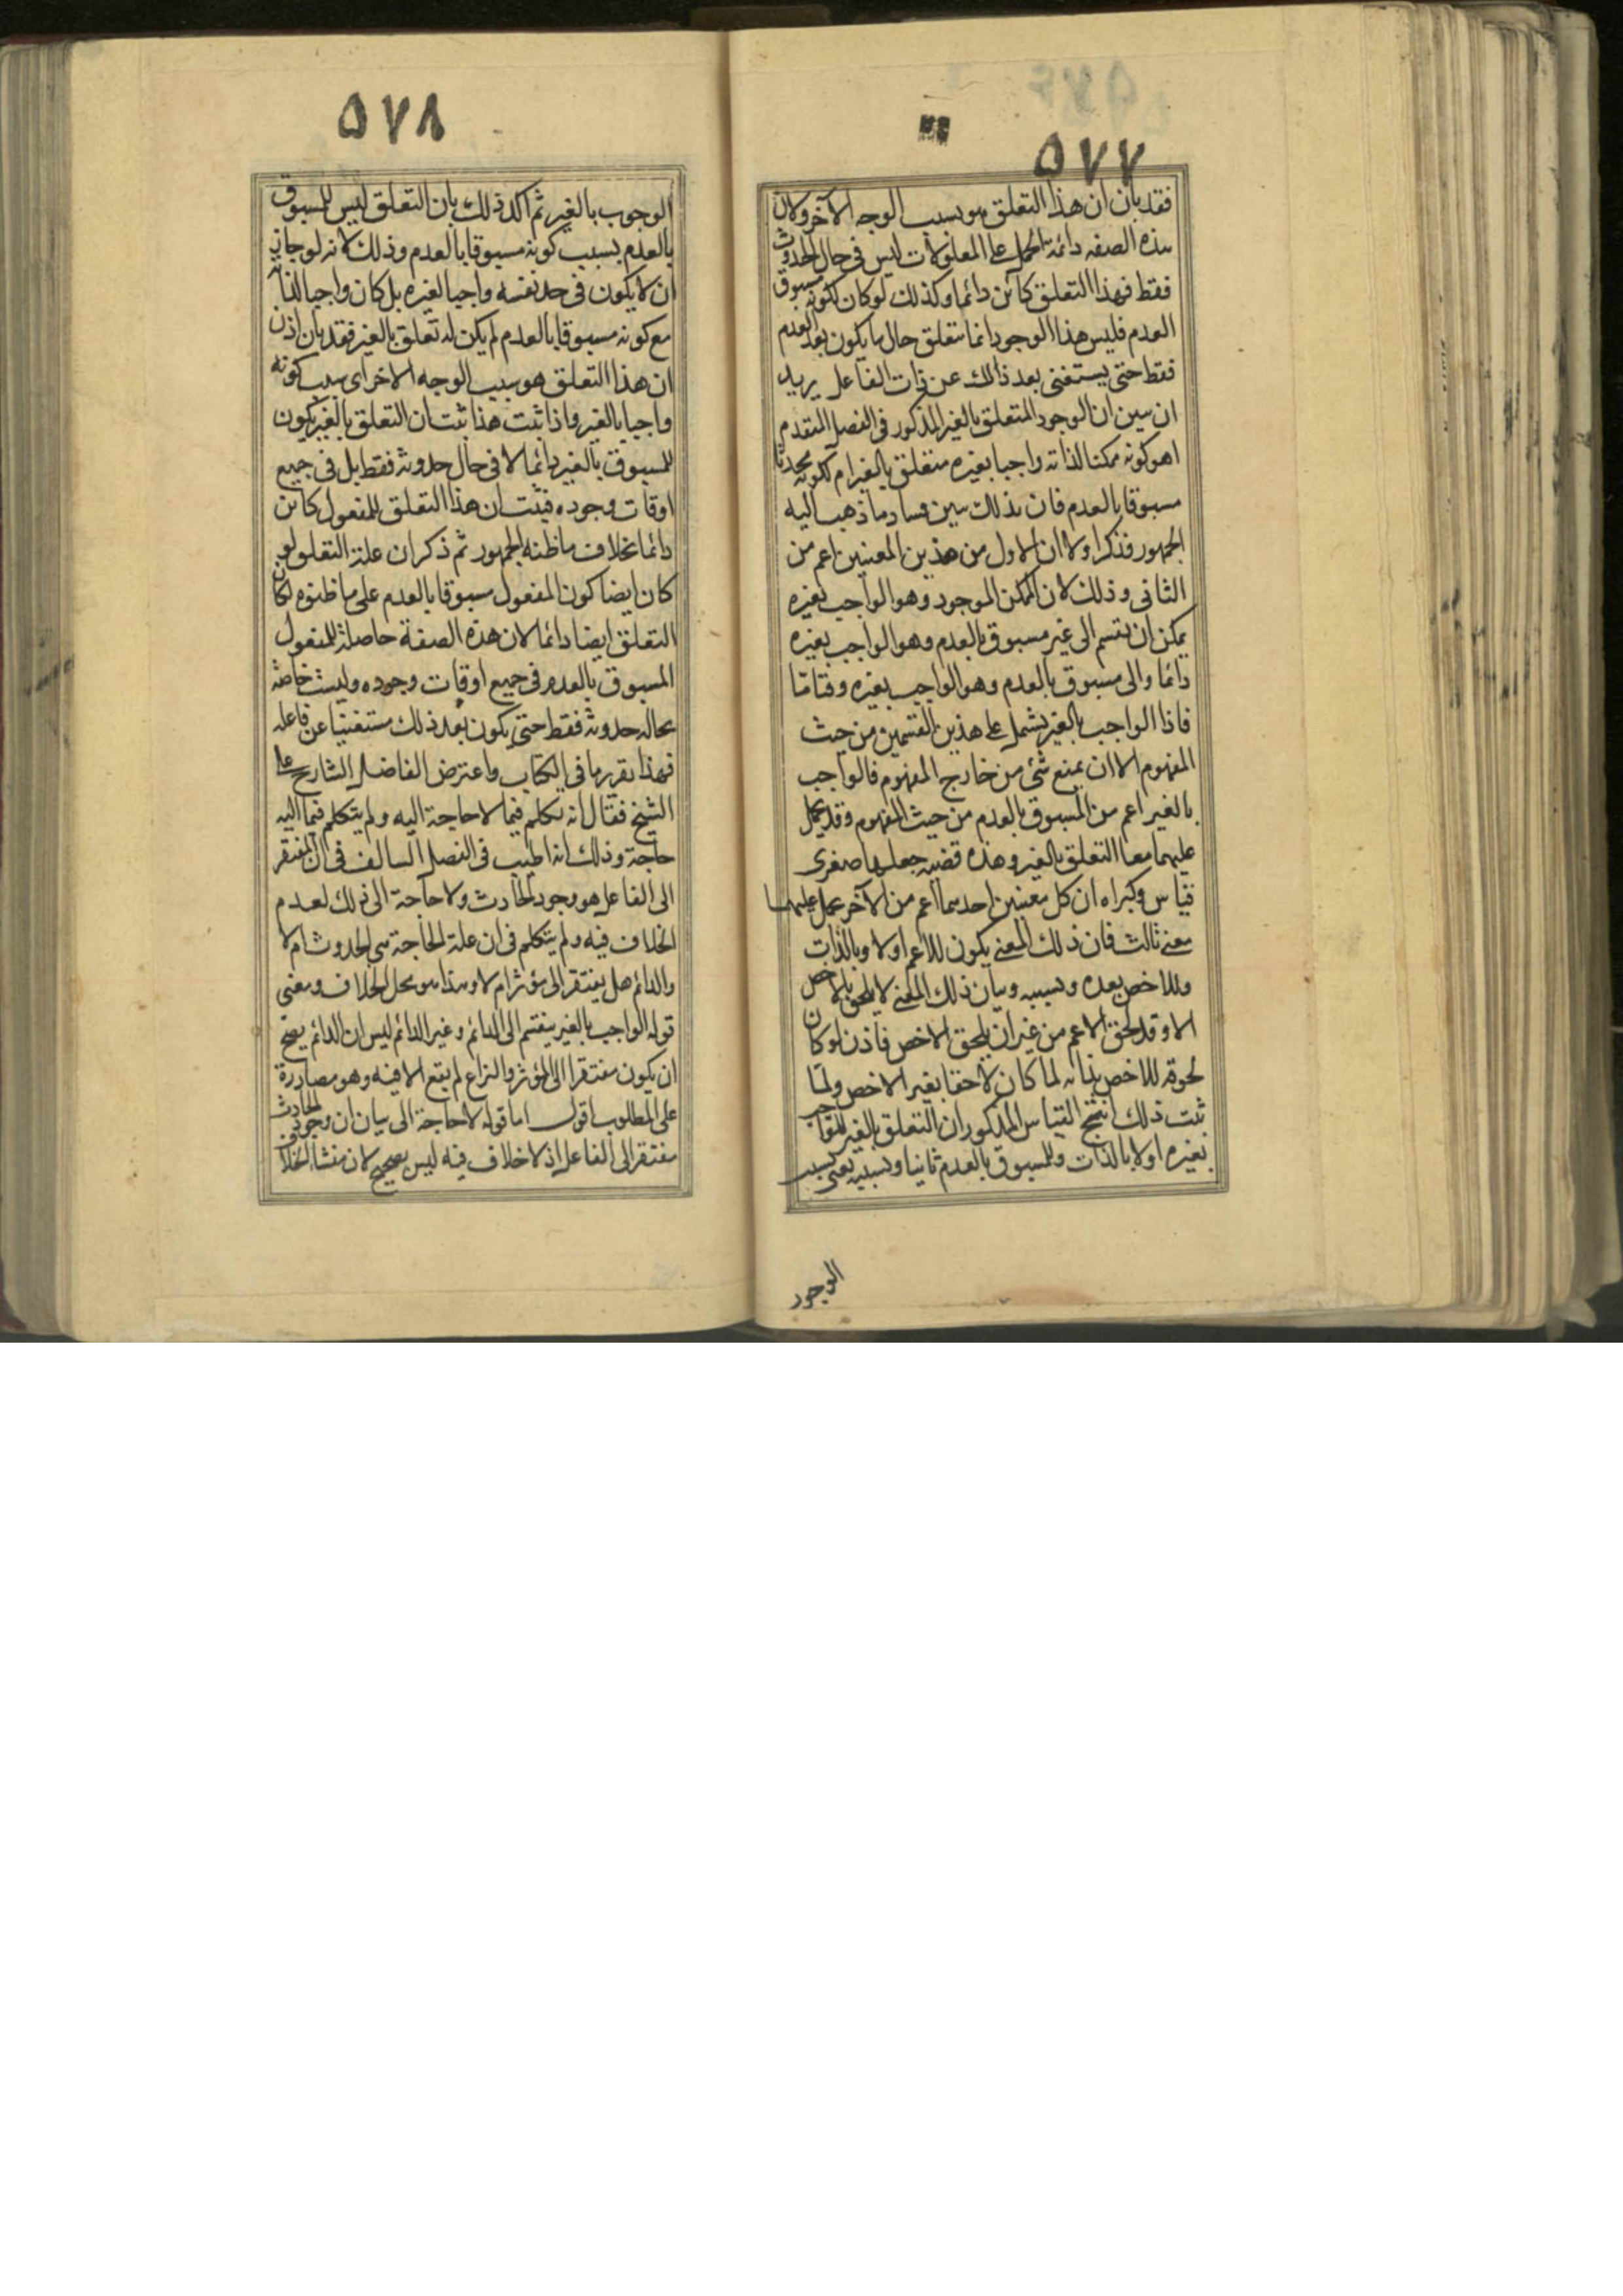 ۵۷۷
فقد بان ان هذا التعلق هو بسبب الوجه الآخر ولان
هذه الصفه دائمة الحمل على المعلولات ليس فى حال الحدوث
فقط فهذا التعلق كائن دائما وكذلك لو كان لكونه مسبوق
العدم فليس هذا الوجود انما يتعلق حال ما يكون بعد العدم
فقط حتى يستغنى بعد ذلك عن ذات الفاعل يريد
ان يبين ان الوجود المتعلق بالغير المذكور فى الفصل المتقدم
اهو كونه ممكنا لذاته واجبا بغيره متعلق بالغير ام لكونه محدثا
مسبوقا بالعدم فان بذلك يبين فساد ما ذهب اليه
الجمهور فذكر اولا ان الاول من هذين المعنيين اعم من
الثانى وذلك لان الممكن الموجود وهو الواجب بغيره
يمكن ان يقسم الى غير مسبوق بالعدم وهو الواجب بغيره
دائما والى مسبوق بالعدم وهو الواجب بغيره وقتا ما
فاذا الواجب بالغير يشمل على هذين القسمين من حيث
المفهوم الا ان يمنع شئ من خارج المفهوم فالواجب
بالغير اعم من المسبوق بالعدم من حيث المفهوم وقد يحمل
عليهما معا التعلق بالغير وهذه قضيه جعلها صغرى
قياس وكبراه ان كل معنيين احدهما اعم من الآخر يحمل عليهما
معنى ثالث فان ذلك المعنى يكون للاعم اولا وبالذات
وللاخص بعده وبسببه وبيان ذلك المعنى لا يلحق بالاخص
الا وقد لحق الاعم من غير ان يلحق الاخص فاذن لو كان
لحوقه للاخص بذاته لما كان لاحقا بغير الاخص ولما
ثبت ذلك انتج القياس المذكور ان التعلق بالغير للواجب
بغيره اولا بالذات وللمسبوق بالعدم ثانيا وبسببه يعنى بسبب
الوجود
۵۷۸
الوجوب بالغير ثم اكد ذلك بان التعلق ليس للمسبوق
بالعدم بسبب كونه مسبوقا بالعدم وذلك لانه لو جاز
ان لا يكون فى حد نفسه واجبا لغيره بل كان واجبا لذاته
مع كونه مسبوقا بالعدم لم يكن له تعلق بالغير فقد بان اذن
ان هذا التعلق هو بسبب الوجه الاخر اى بسبب كونه
واجبا بالغير واذا ثبت هذا ثبت ان التعلق بالغير يكون
للمسبوق بالغير دائما لا فى حال حدوثه فقط بل فى جميع
اوقات وجوده فثبت ان هذا التعلق للمفعول كائن
دائما بخلاف ما ظنه الجمهور ثم ذكر ان علة التعلق لو
كان ايضا كون المفعول مسبوقا بالعدم على ما ظنوه لكان
التعلق ايضا دائما لان هذه الصفة حاصلة للمفعول
المسبوق بالعدم فى جميع اوقات وجوده وليست خاصة
بحاله حدوثه فقط حتى يكون بعد ذلك مستغنيا عن فاعله
فهذا تقرير ما فى الكتاب واعترض الفاضل الشارح على
الشيخ فقال انه تكلم فيما لا حاجة اليه ولم يتكلم فيما اليه
حاجة وذلك انه اطنب فى الفصل السالف فى ان المفتقر
الى الفاعل هو وجود الحادث ولا حاجة الى ذلك لعدم
الخلاف فيه ولم يتكلم فى ان علة الحاجة هى الحدوث ام لا
والدائم هل يفتقر الى مؤثر ام لا وهذا هو محل الخلاف ومعنى
قوله الواجب بالغير ينقسم الى الدائم وغير الدائم ليس ان الدائم يصح
ان يكون مفتقرا الى المؤثر والنزاع لم يقع الا فيه وهو مصادرة
على المطلوب اقول اما قوله لا حاجة الى بيان ان وجود الحادث
مفتقر الى الفاعل اذ لا خلاف فيه ليس بصحيح لان منشا الخلاف